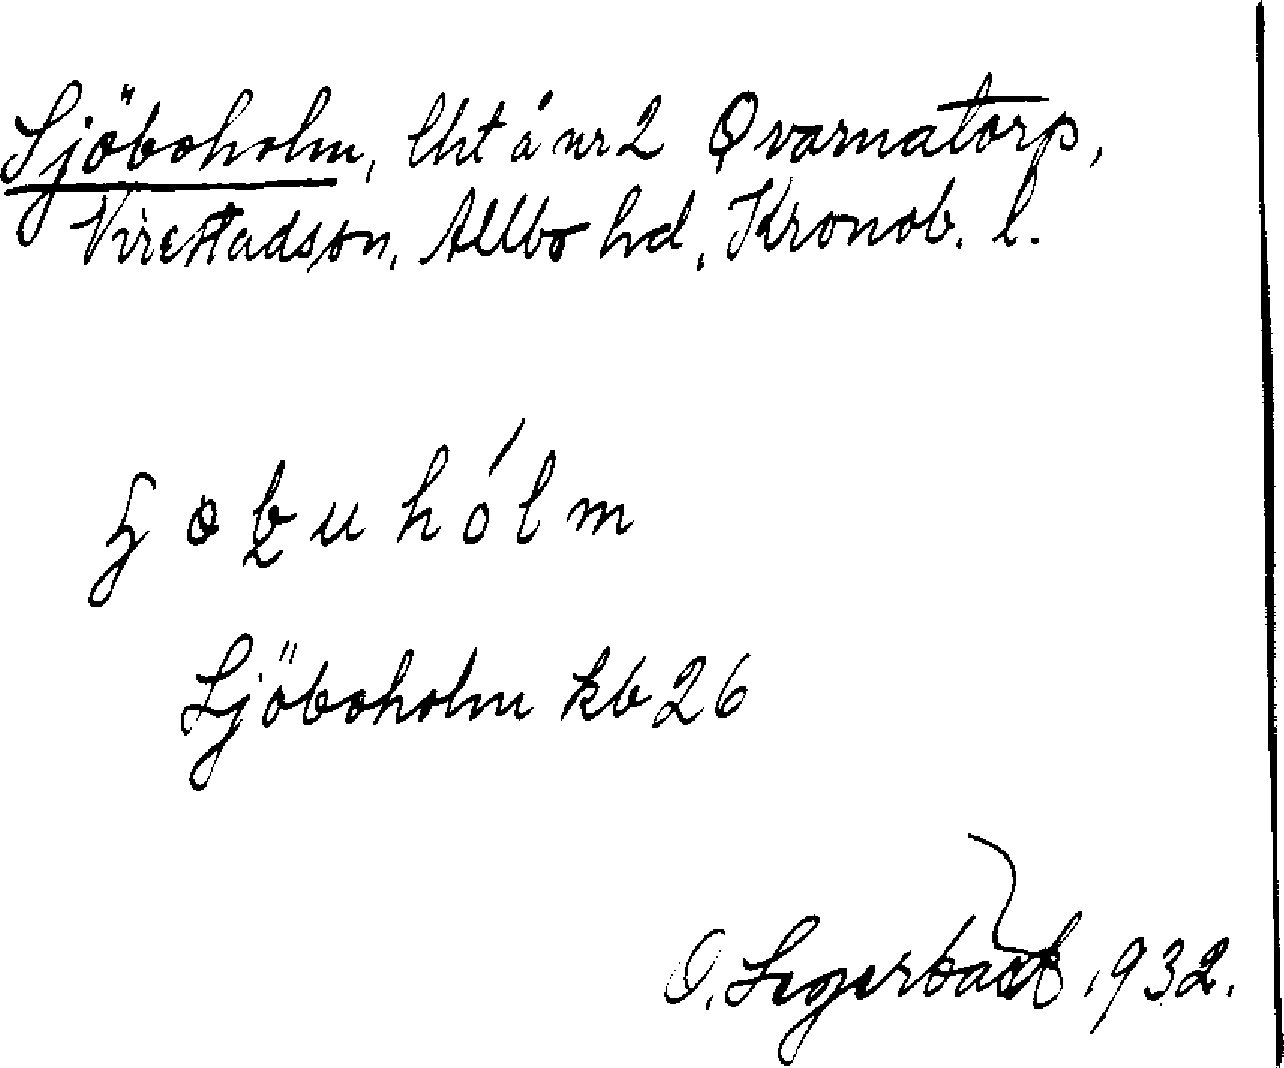 Sjöboholm, lht å nr 2 Qvarnatorp,
Virestads sn, Allbo hd, Kronob. l.
uhólm
Sjöboholm kb 26
O. Segerbäck 1932.